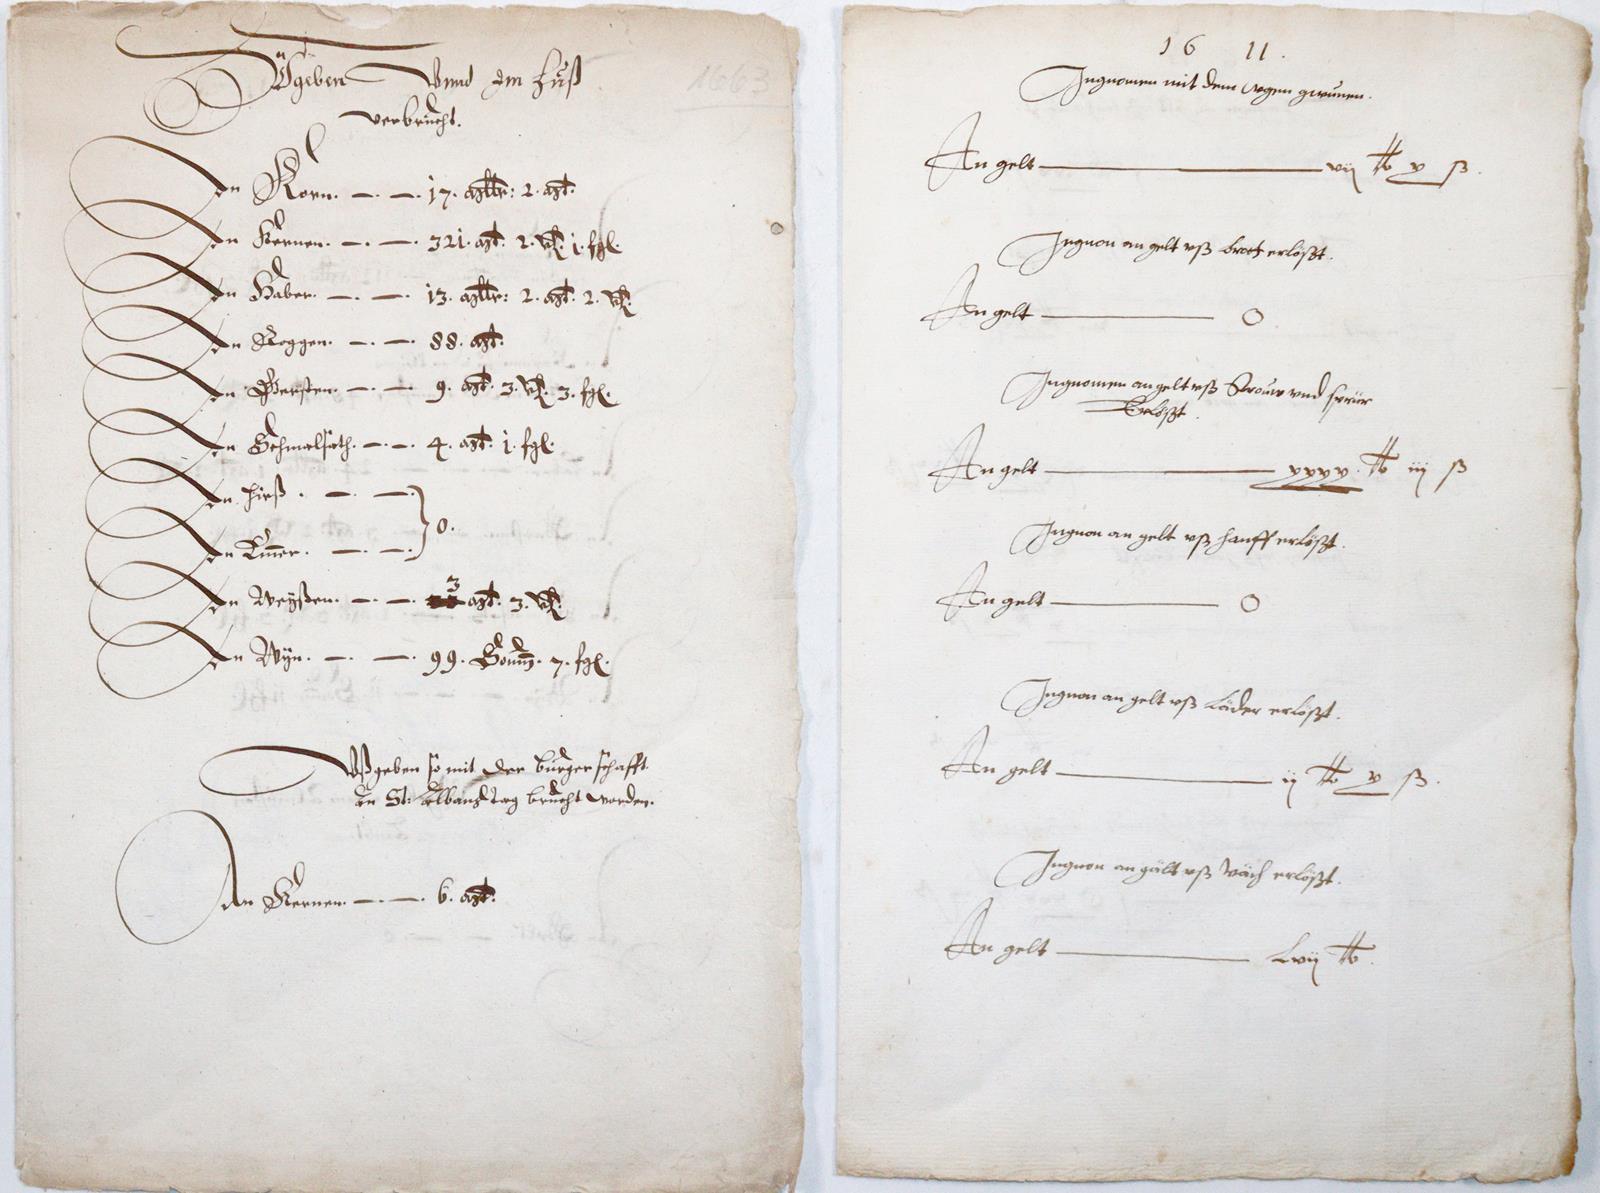 Ußgeben Vnnd Im Huß
verbrucht.
1663
An Korn. — . — . 17. mltr: 2. mt.
An Kernen. — . — . 321. mt. 2. vl. 1. fgl.
An Haber. — . — . 13. mltr: 2. mt. 2. vl.
An Roggen. — . — . 88. mt.
An Gersten. — . — . 9. mt. 3. vl. 3. fgl.
An Schmalsath. — . — . 4. mt. 1. fgl.
An Hirß . — . — .
0.
An . — . — .
An Weyßen. — . — . 3 mt. 3. vl.
An Wyn. — . — . 99. Soum. 7. fgl.
Vßgeben so mit der burgerschafft
an St: Albans tag brucht worden.
An Kernen. — . — . 6. mt.
16 11.
Ingnomen mit dem wgen gwunen.
An gelt — vij ℔ v ß.
Ingnon an gelt vß brott erlößt.
An gelt — 0
Ingnomen an gelt vß Strouw vnd sprür
Erlößt.
An gelt — xxxv. ℔ iij ß
Ingnon an gelt vß hanff erlößt.
An gelt — 0
Ingnon an gelt vß Läder erlößt.
An gelt — ij ℔ v ß.
Ingnon an gält vß väch erlößt.
An gelt — Lvij ℔.